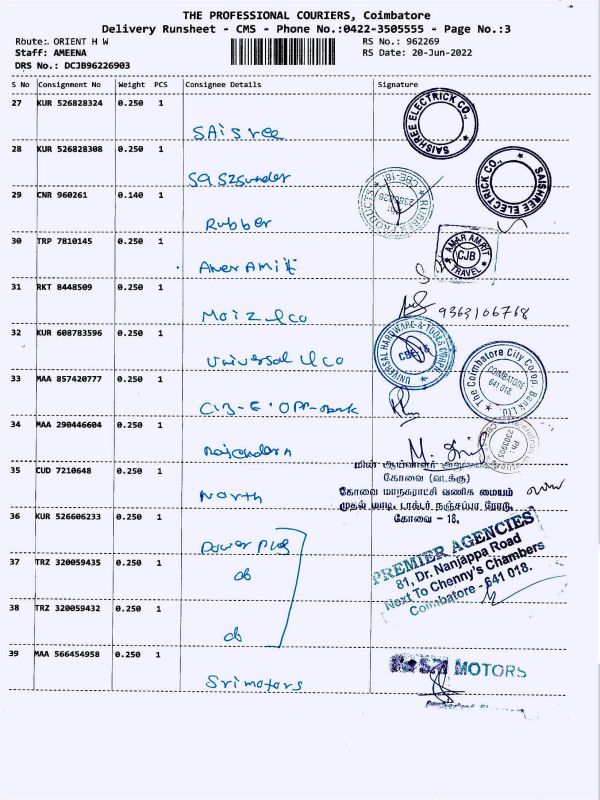 THE PROFESSIONAL COURIERS, Coimbatore
Delivery Runsheet - CMS - Phone No.:0422-3505555 - Page No.:3
Route: ORIENT H W RS No.: 962269
Staff: AMEENA RS Date: 20-Jun-2022
DRS No.: DCJB96226903
S No Consignment No Weight PCS Consignee Details Signature
27 KUR 526828324 0.250 1
SAisree
SAISHREE ELECTRICK CO.,
28 KUR 526828308 0.250 1
SAISHREE ELECTRICK CO.,
29 CNR 960261 0.140 1
Rubber
RUBBER PRODUCTS CBE-18
30 TRP 7810145 0.250 1
AMAR AMRIT
CJB
TRAVEL
31 RKT 8448509 0.250 1
Moiz &co
9363106768
32 KUR 608783596 0.250 1
Universal &co
UNIVERSAL HARDWARE & TOOLS
33 MAA 857420777 0.250 1
The Coimbatore City Co.op. Bank Ltd.
COIMBATORE
641 018.
34 MAA 290446604 0.250 1
35 CUD 7210648 0.250 1
North
கோவை (வடக்கு)
கோவை மாநகராட்சி வணிக மையம்
முதல் மாடி, டாக்டர் நஞ்சப்பா ரோடு,
கோவை - 18.
36 KUR 526606233 0.250 1
37 TRZ 320059435 0.250 1
do
38 TRZ 320059432 0.250 1
do
PREMIER AGENCIES
81, Dr. Nanjappa Road
Next To Chenny's Chambers
Coimbatore - 641 018.
39 MAA 566454958 0.250 1
Srimotors
MOTORS